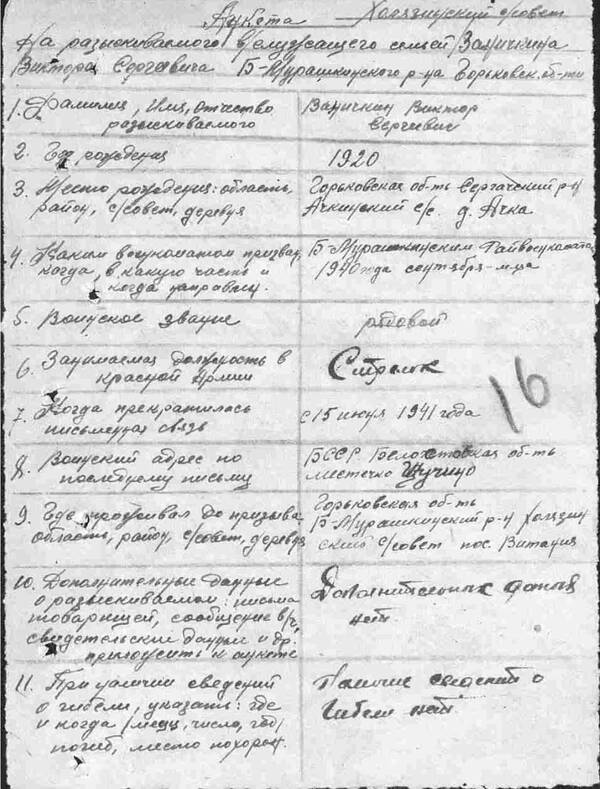 Анкета Холязинский с/совет
На разыскиваемого в/служащего семьёй Заничкина
Виктора Сергеевича Б-Мурашкинского р-на Горьковск. об-ти
1. Фамилия, Имя, отчество Заничкин Виктор
разыскиваемого Сергеевич
2. Год рождения 1920
3. Место рождения: область, Горьковская об-ть Сергачский р-н
район, с/совет, деревня Ачкинский с/с. д. Ачка
4. Каким военкоматом призван, Б-Мурашкинским Райвоенкоматом
когда, в какую часть и 1940 года сентября м-ца
когда направлен.
5. Воинское звание рядовой
6. Занимаемая должность в Стрелок
красной Армии
7. Когда прекратилась с 15 июня 1941 года
письменная связь
16
8. Воинский адрес по БССР Белостокская об-ть
последнему письму местечко Щучино
9. Где проживал до призыва Горьковская об-ть
область, район, с/совет, деревня Б-Мурашкинский р-н Холязин
ский с/совет пос.
10. Дополнительные данные Дополнительных данных
о разыскиваемом: письма нет.
товарищей, сообщение в/ч,
свидетельские данные и др.
приложить к анкете
11. При наличии сведений Наличие сведений о
о гибели, указать: где гибели нет
и когда /месяц, число, год/
погиб, место похорон.